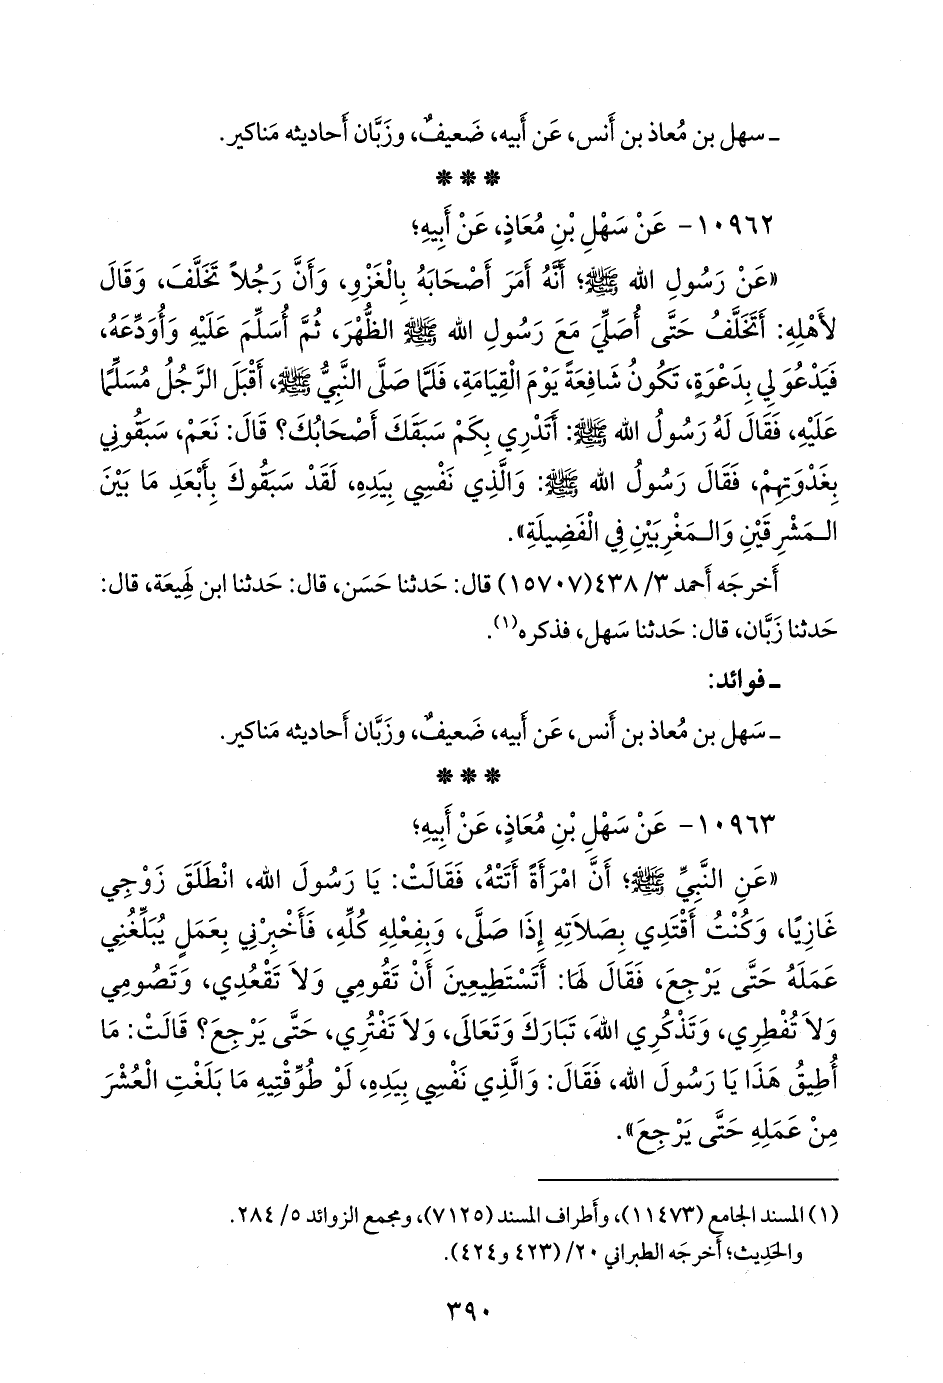 ـ سهل بن مُعاذ بن أَنس، عَن أَبيه، ضَعيفٌ، وزَبَّان أَحاديثه مَناكير.
* * *
١٠٩٦٢ - عَنْ سَهْلِ بْنِ مُعَاذٍ، عَنْ أَبِيهِ؛
«عَنْ رَسُولِ الله ﷺ؛ أَنَّهُ أَمَرَ أَصْحَابَهُ بِالْغَزْوِ، وَأَنَّ رَجُلاً تَخَلَّفَ، وَقَالَ
لأَهْلِهِ: أَتَخَلَّفُ حَتَّى أُصَلِّيَ مَعَ رَسُولِ الله ﷺ الظُّهْرَ، ثُمَّ أُسَلِّمَ عَلَيْهِ وَأُوَدِّعَهُ،
فَيَدْعُوَ لِي بِدَعْوَةٍ، تَكُونُ شَافِعَةً يَوْمَ الْقِيَامَةِ، فَلَمَّا صَلَّى النَّبِيُّ ﷺ، أَقْبَلَ الرَّجُلُ مُسَلِّمًا
عَلَيْهِ، فَقَالَ لَهُ رَسُولُ الله ﷺ: أَتَدْرِي بِكَمْ سَبَقَكَ أَصْحَابُكَ؟ قَالَ: نَعَمْ، سَبَقُونِي
بِغَدْوَتِهِمْ، فَقَالَ رَسُولُ الله ﷺ: وَالَّذِي نَفْسِي بِيَدِهِ، لَقَدْ سَبَقُوكَ بِأَبْعَدِ مَا بَيْنَ
الـمَشْرِقَيْنِ وَالـمَغْرِبَيْنِ فِي الْفَضِيلَةِ».
أَخرجَه أَحمد ٣/ ٤٣٨(١٥٧٠٧) قال: حَدثنا حَسَن، قال: حَدثنا ابن لَهِيعَة، قال:
حَدثنا زَبَّان، قال: حَدثنا سَهل، فذكره(١).
ـ فوائد:
ـ سَهل بن مُعاذ بن أَنس، عَن أَبيه، ضَعيفٌ، وزَبَّان أَحاديثه مَناكير.
* * *
١٠٩٦٣ - عَنْ سَهْلِ بْنِ مُعَاذٍ، عَنْ أَبِيهِ؛
«عَنِ النَّبِيِّ ﷺ؛ أَنَّ امْرَأَةً أَتَتْهُ، فَقَالَتْ: يَا رَسُولَ الله، انْطَلَقَ زَوْجِي
غَازِيًا، وَكُنْتُ أَقْتَدِي بِصَلاَتِهِ إِذَا صَلَّى، وَبِفِعْلِهِ كُلِّهِ، فَأَخْبِرْنِي بِعَمَلٍ يُبَلِّغُنِي
عَمَلَهُ حَتَّى يَرْجِعَ، فَقَالَ لَهَا: أَتَسْتَطِيعِينَ أَنْ تَقُومِي وَلاَ تَقْعُدِي، وَتَصُومِي
وَلاَ تُفْطِرِي، وَتَذْكُرِي اللهَ، تَبَارَكَ وَتَعَالَى، وَلاَ تَفْتُرِي، حَتَّى يَرْجِعَ؟ قَالَتْ: مَا
أُطِيقُ هَذَا يَا رَسُولَ الله، فَقَالَ: وَالَّذِي نَفْسِي بِيَدِهِ، لَوْ طُوِّقْتِيهِ مَا بَلَغْتِ الْعُشْرَ
مِنْ عَمَلِهِ حَتَّى يَرْجِعَ».
(١) المسند الجامع (١١٤٧٣)، وأَطراف المسند (٧١٢٥)، ومجمع الزوائد ٥/ ٢٨٤.
والحَدِيث؛ أَخرجَه الطبراني ٢٠/ (٤٢٣ و٤٢٤).
٣٩٠